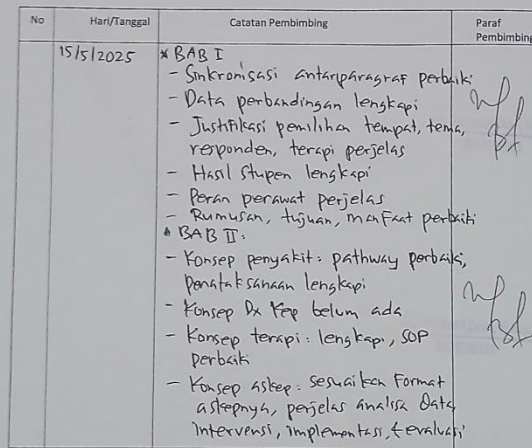 No Hari/Tanggal Catatan Pembimbing Paraf Pembimbing
15/5/2025 * BAB I
- Sinkronisasi antarparagraf perbaiki
- Data perbandingan lengkapi
- Justifikasi pemilihan tempat, tema,
responden, terapi perjelas
- Hasil stupen lengkapi
- Peran perawat perjelas
- Rumusan, tujuan, manfaat perbaiki
* BAB II:
- Konsep penyakit: pathway perbaiki,
penatalaksanaan lengkapi
- Konsep Dx Kep belum ada
- Konsep terapi: lengkapi, SOP
perbaiki
- Konsep askep: sesuaikan format
askepnya, perjelas analisa data,
intervensi, implementasi, & evaluasi